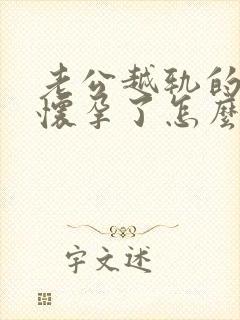 老公越轨的
懷孕了怎麼
宇文述